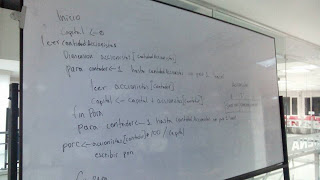 Inicio
Capital ← 0
leer cantidadAccionistas
Dimension accionistas[cantidadAccionistas]
para contador ← 1 hasta cantidadAccionistas
leer accionistas[contador]
capital ← capital + accionistas[contador]
fin Para
para contador ← 1 hasta cantidadAccionistas
porc ← accionistas[contador] * 100 / capital
escribir porc